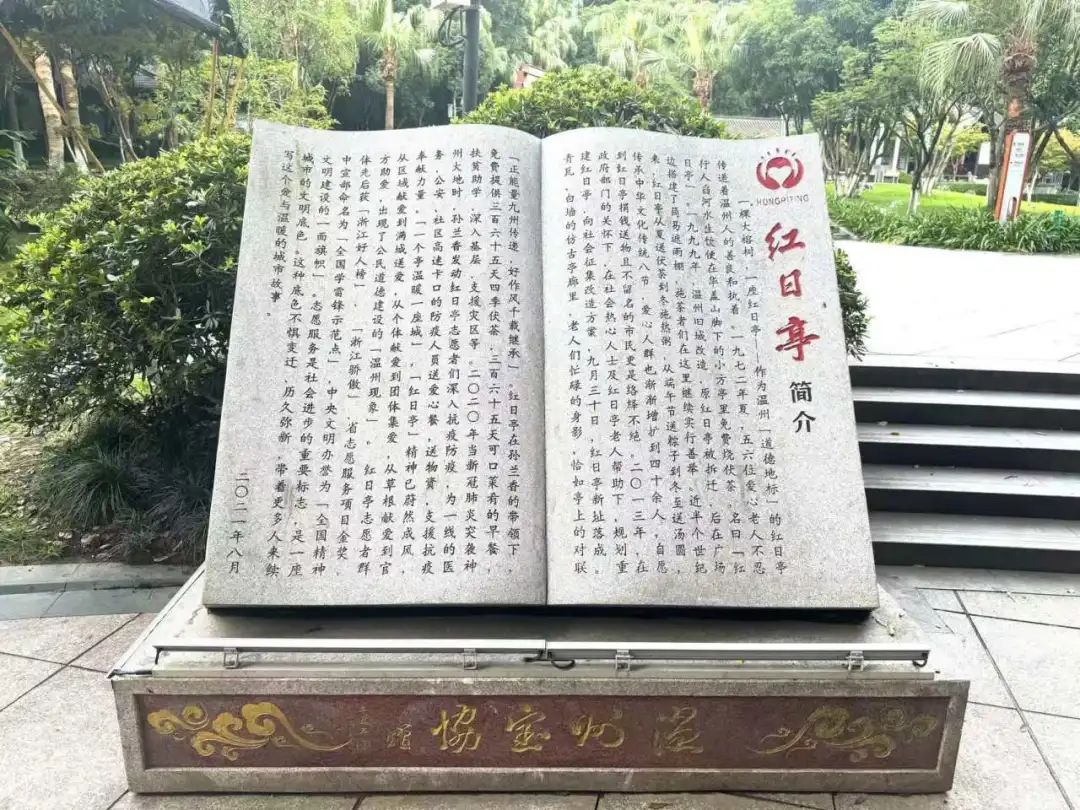 HONGRITING
红日亭 简介
一棵大榕树，一座红日亭——作为温州「道德地标」的红日亭
传递着温州人的善良和执着。一九七二年夏，五六位爱心老人不忍
行人白河水生饮便在华盖山脚下的小方亭里免费烧伏茶。名曰「红
日亭」。一九九九年，温州旧城改造，原红日亭被拆迁，后在广场
边搭建了简易遮雨棚，施茶者们在这里继续实行善举。近半个世纪
来，红日亭从夏送伏茶到冬施热粥，从端午节送粽子到冬至送汤圆，
传承中华文化传统八节，爱心人群也渐渐增扩到四十余人，自愿
到红日亭捐钱送物且不留名的市民更是络绎不绝。二〇一三年，在
政府部门的关怀下，在社会热心人士及红日亭老人帮助下，规划重
建红日亭，向社会征集改造方案，九月三十日，红日亭新址落成。
青瓦，白墙的仿古亭廊里，老人们忙碌的身影，恰如亭上的对联
「正能量九州传递，好作风千载继承」。红日亭在孙兰香的带领下，
免费提供三百六十五天四季伏茶，三百六十五天可口菜肴的早餐，
扶贫助学，深入基层，支援灾区等。二〇二〇年当新冠肺炎突袭神
州大地时，孙兰香发动红日亭志愿者们深入抗疫防疫，为一线的医
务，公安，社区高速卡口的防疫人员送爱心餐，送物资，支援抗疫
奉献力量。「一个亭温暖一座城」，「红日亭」精神已蔚然成风，
从区域献爱到满城送爱，从个体献爱到团体集爱，从草根献爱到官
方助爱，出现了公民道德建设的「温州现象」。红日亭志愿者群
体先后获「浙江好人榜」，「浙江骄傲」，省志愿服务项目金奖
中宣部命名为「全国学雷锋示范点」，中央文明办誉为「全国精神
文明建设的一面旗帜」。志愿服务是社会进步的重要标志，是一座
城市的文明底色。这种底色不惧变迁，历久弥新，带着更多人来续
写这个爱与温暖的城市故事。
二〇二一年八月
温州宝協
赠